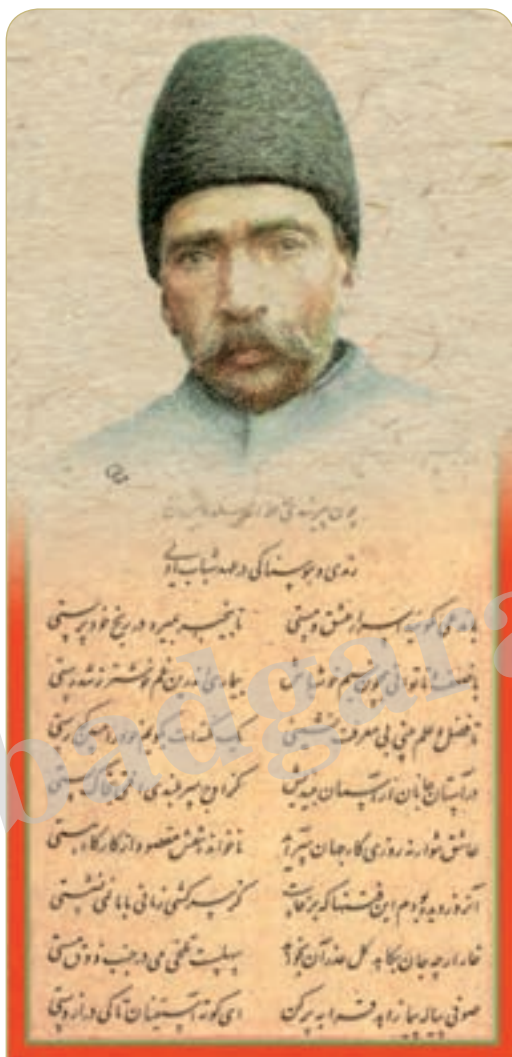 چون پیر شدی حافظ از میکده بیرون
رندی و هوسناکی در عهد شباب اولی
با مدعی مگوئید اسرار عشق و مستی تا بیخبر بمیرد در رنج خودپرستی
با ضعف و ناتوانی همچون نسیم خوش باش بیماری اندرین غم خوشتر ز تندرستی
تا فضل و علم بینی بی معرفت نشینی یک نکته ات بگویم خود را مبین که رستی
در آستان جانان از آسمان میندیش کز اوج سربلندی افتی بخاک پستی
عاشق شو ارنه روزی کار جهان سرآید ناخوانده نقش مقصود از کارگاه هستی
آنروز دیده بودم این فتنها که برخاست کز سرکشی زمانی با ما نمی نشستی
خار ارچه جان بکاهد گل عذر آن بخواهد سهلست تلخی می در جنب ذوق مستی
صوفی پیاله پیما زاهد قرابه پرکن ای کوته آستینان تا کی درازدستی
badgara